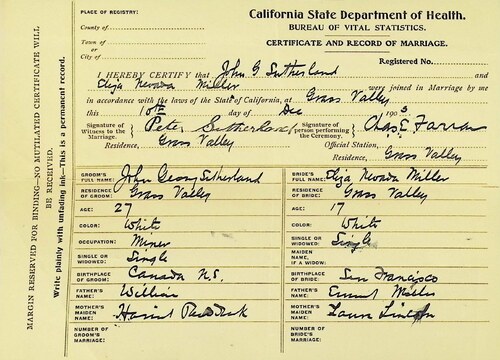 California State Department of Health.
BUREAU OF VITAL STATISTICS.
CERTIFICATE AND RECORD OF MARRIAGE.
PLACE OF REGISTRY:
County of
Town of
or
City of
Registered No.
I HEREBY CERTIFY that John G Sutherland and
Eliza Nevada Miller were joined in Marriage by me
in accordance with the laws of the State of California, at Grass Valley
this 10th day of Dec 1903
Signature of Witness to the Marriage. Peter Sutherland
Signature of person performing the Ceremony. Chas E Farrar
Residence, Grass Valley
Official Station, Residence, Grass Valley
GROOM'S FULL NAME: John George Sutherland
RESIDENCE OF GROOM: Grass Valley
AGE: 27
COLOR: White
OCCUPATION: Miner
SINGLE OR WIDOWED: Single
BIRTHPLACE OF GROOM: Canada N.S.
FATHER'S NAME: William
MOTHER'S MAIDEN NAME:
NUMBER OF GROOM'S MARRIAGE:
BRIDE'S FULL NAME: Eliza Nevada Miller
RESIDENCE OF BRIDE: Grass Valley
AGE: 17
COLOR: White
SINGLE OR WIDOWED: Single
MAIDEN NAME, IF A WIDOW:
BIRTHPLACE OF BRIDE: San Francisco
FATHER'S NAME: Miller
MOTHER'S MAIDEN NAME: Laura Lincoln
NUMBER OF BRIDE'S MARRIAGE:
MARGIN RESERVED FOR BINDING—NO MUTILATED CERTIFICATE WILL
BE RECEIVED.
Write plainly with unfading ink—This is a permanent record.